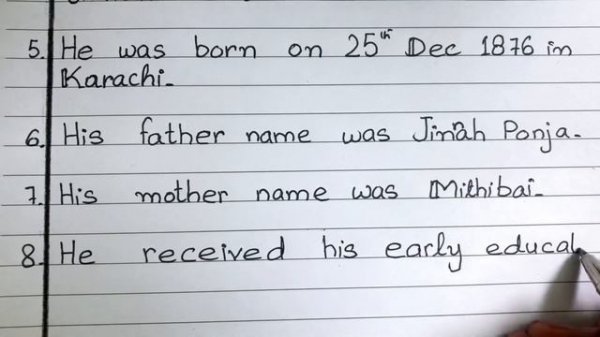 5. He was born on 25th Dec 1876 in
Karachi.
6. His father name was Jinah Ponja.
7. His mother name was Mithibai.
8. He received his early educat